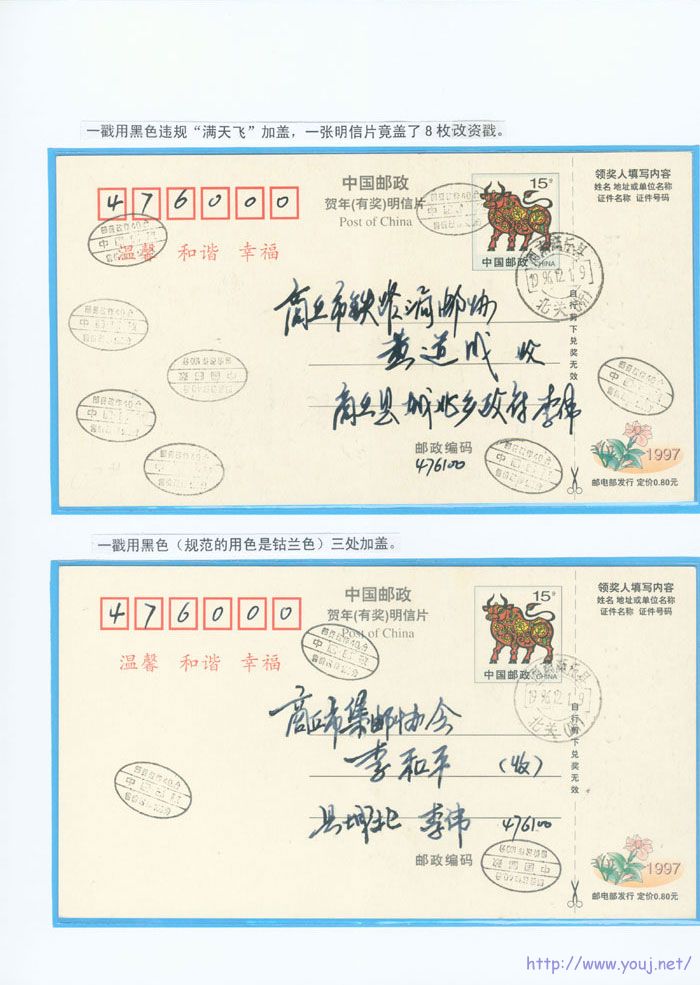 一戳用黑色违规“满天飞”加盖，一张明信片竟盖了8枚改资戳。
476000
中国邮政
贺年(有奖)明信片
Post of China
15分
中国邮政 CHINA
领奖人填写内容
姓名 地址或单位名称
证件名称 证件号码
温馨 和谐 幸福
1996.12.1.9
北关
自行剪下兑奖无效
商丘市铁路
黄道成 收
商丘县城北乡政府李伟
邮政编码
476100
1997
邮电部发行 定价0.80元
一戳用黑色（规范的用色是钴兰色）三处加盖。
476000
中国邮政
贺年(有奖)明信片
Post of China
15分
中国邮政 CHINA
领奖人填写内容
姓名 地址或单位名称
证件名称 证件号码
温馨 和谐 幸福
1996.12.1.9
北关
自行剪下兑奖无效
商丘市集邮协会
李和平 （收）
县城北 李伟 476100
邮政编码
1997
邮电部发行 定价0.80元
http://www.youj.net/